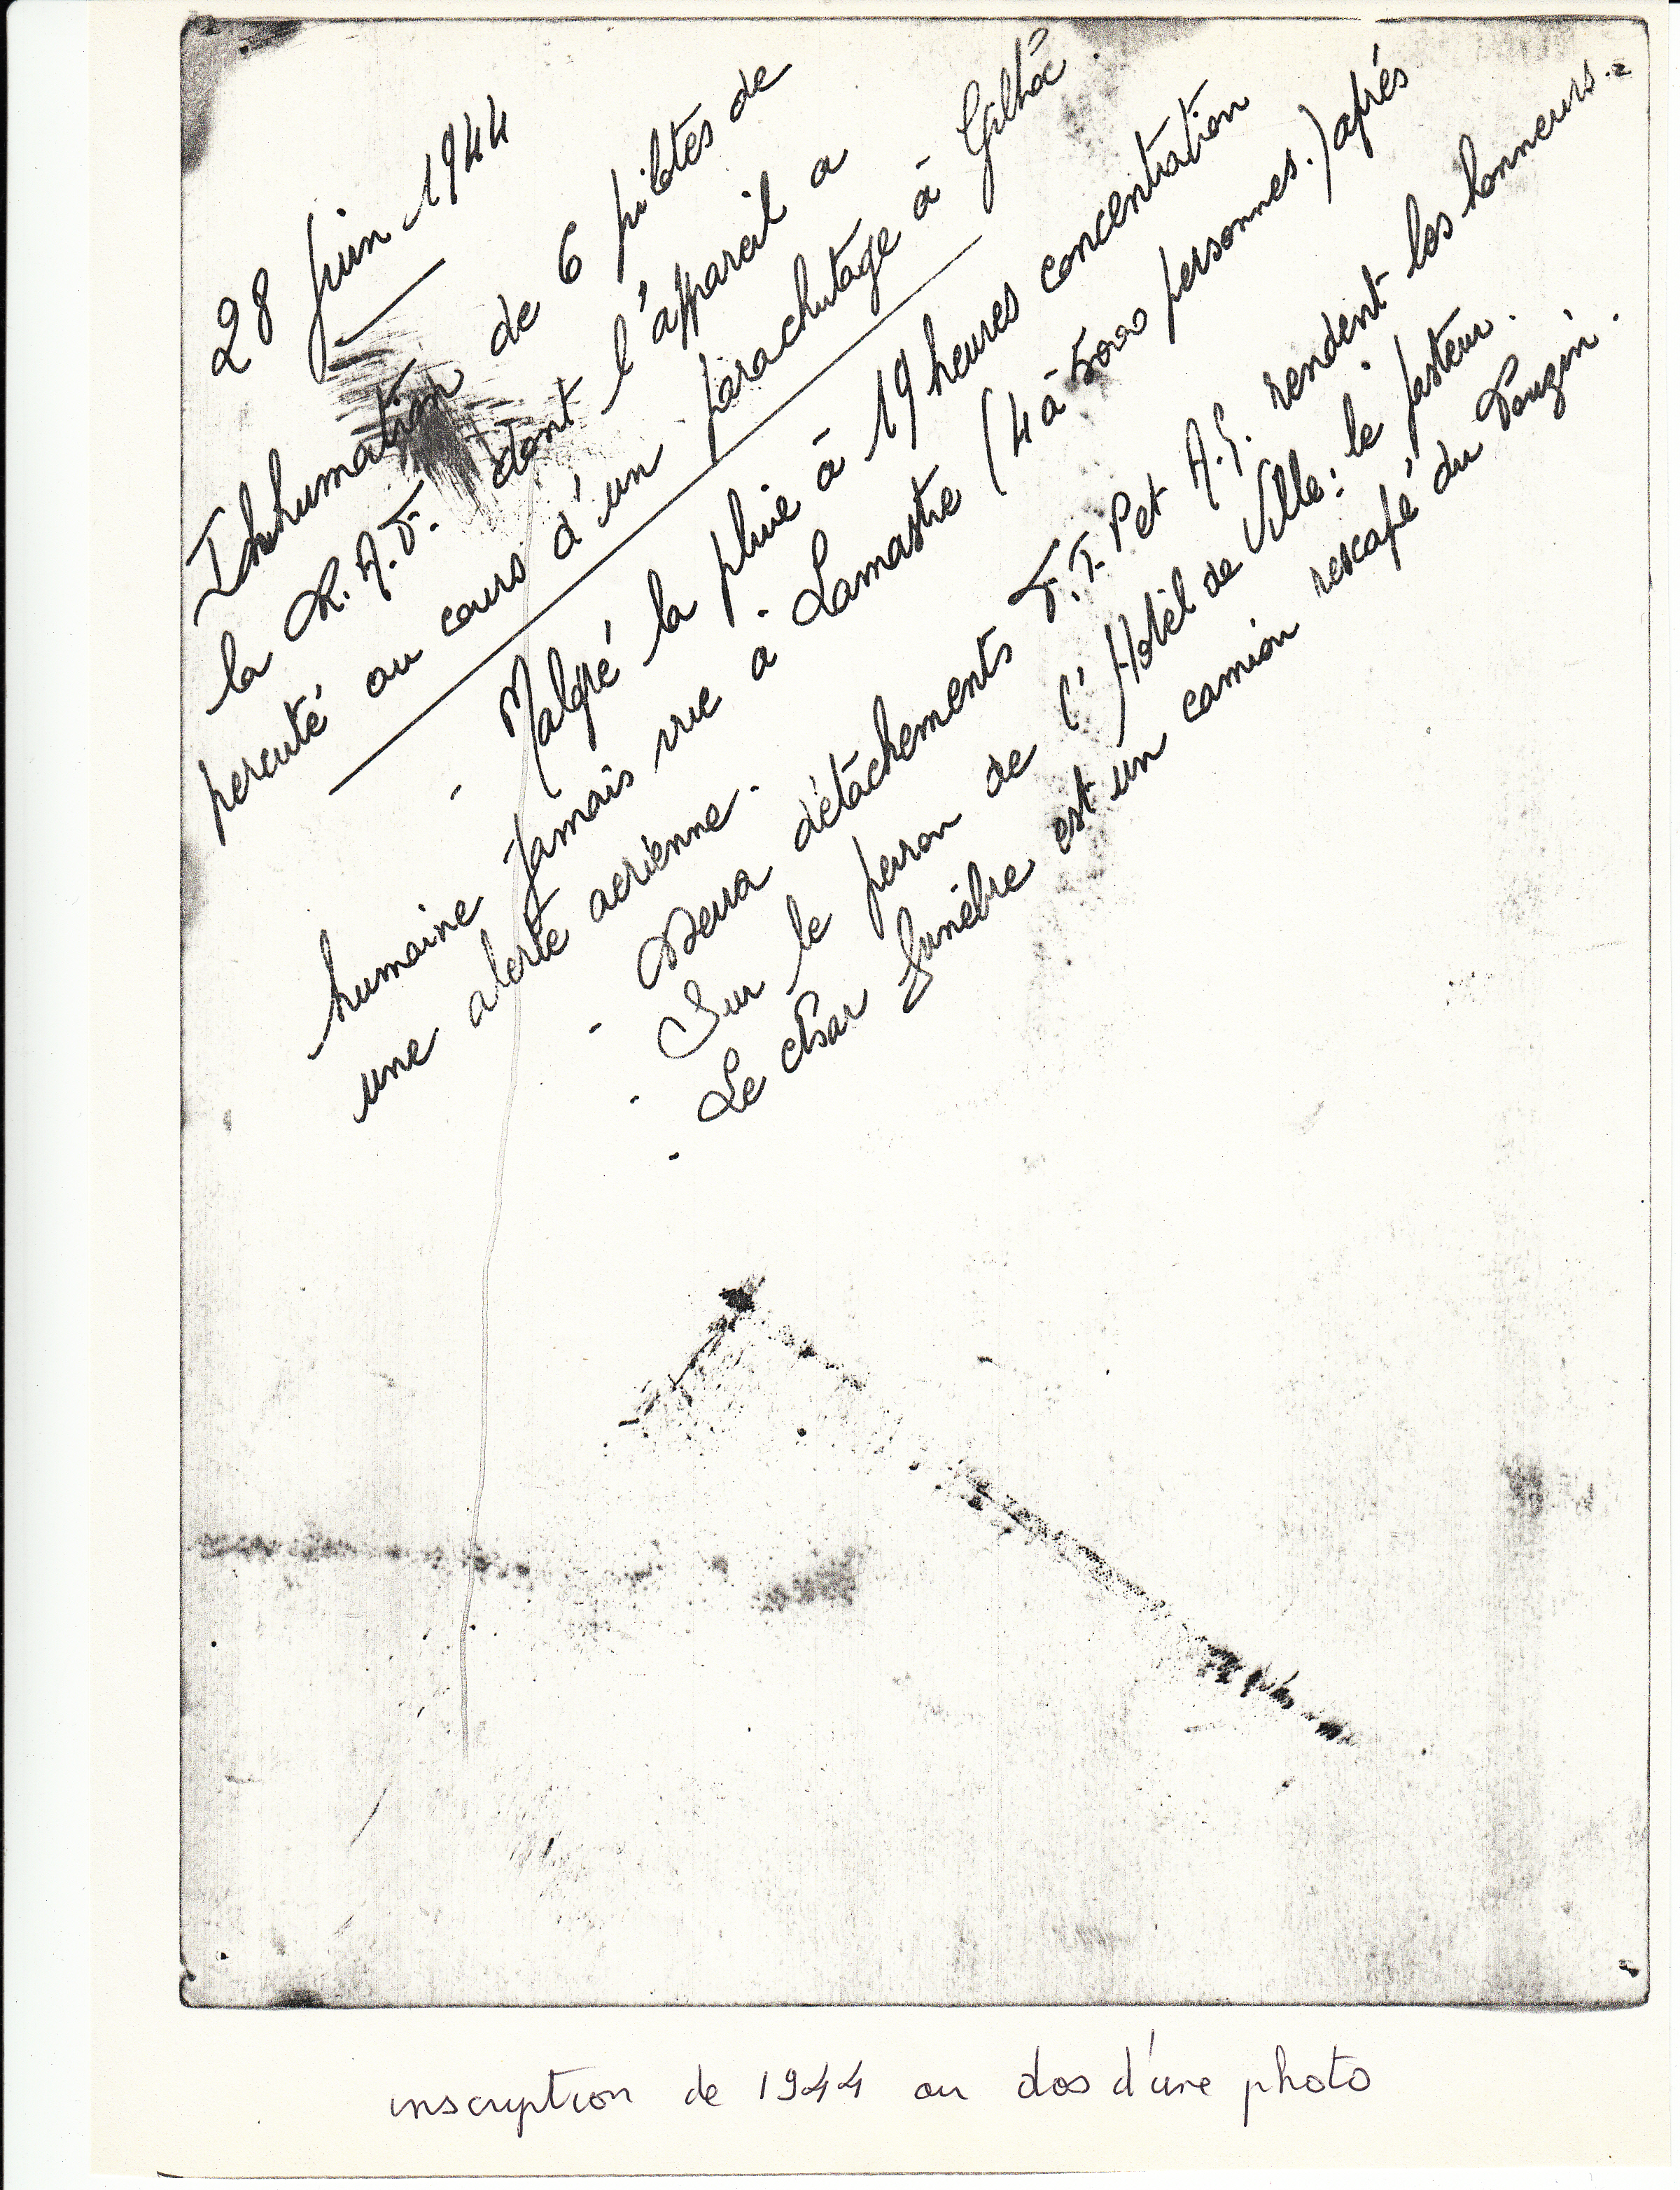 28 juin 1944
Inhumation de 6 pilotes de
la R.A.F. dont l'appareil a
percuté au cours d'un parachutage à Gilhoc
- Malgré la pluie à 19 heures concentration
humaine jamais vue à Lamastre (4 à 5000 personnes.) après
une alerte aerienne.
- Deux détachements F.T.P et A.S. rendent les honneurs.
- Sur le perron de l'Hotel de Ville: le pasteur.
- Le char funèbre est un camion rescapé du Pouzin.
inscription de 1944 au dos d'une photo